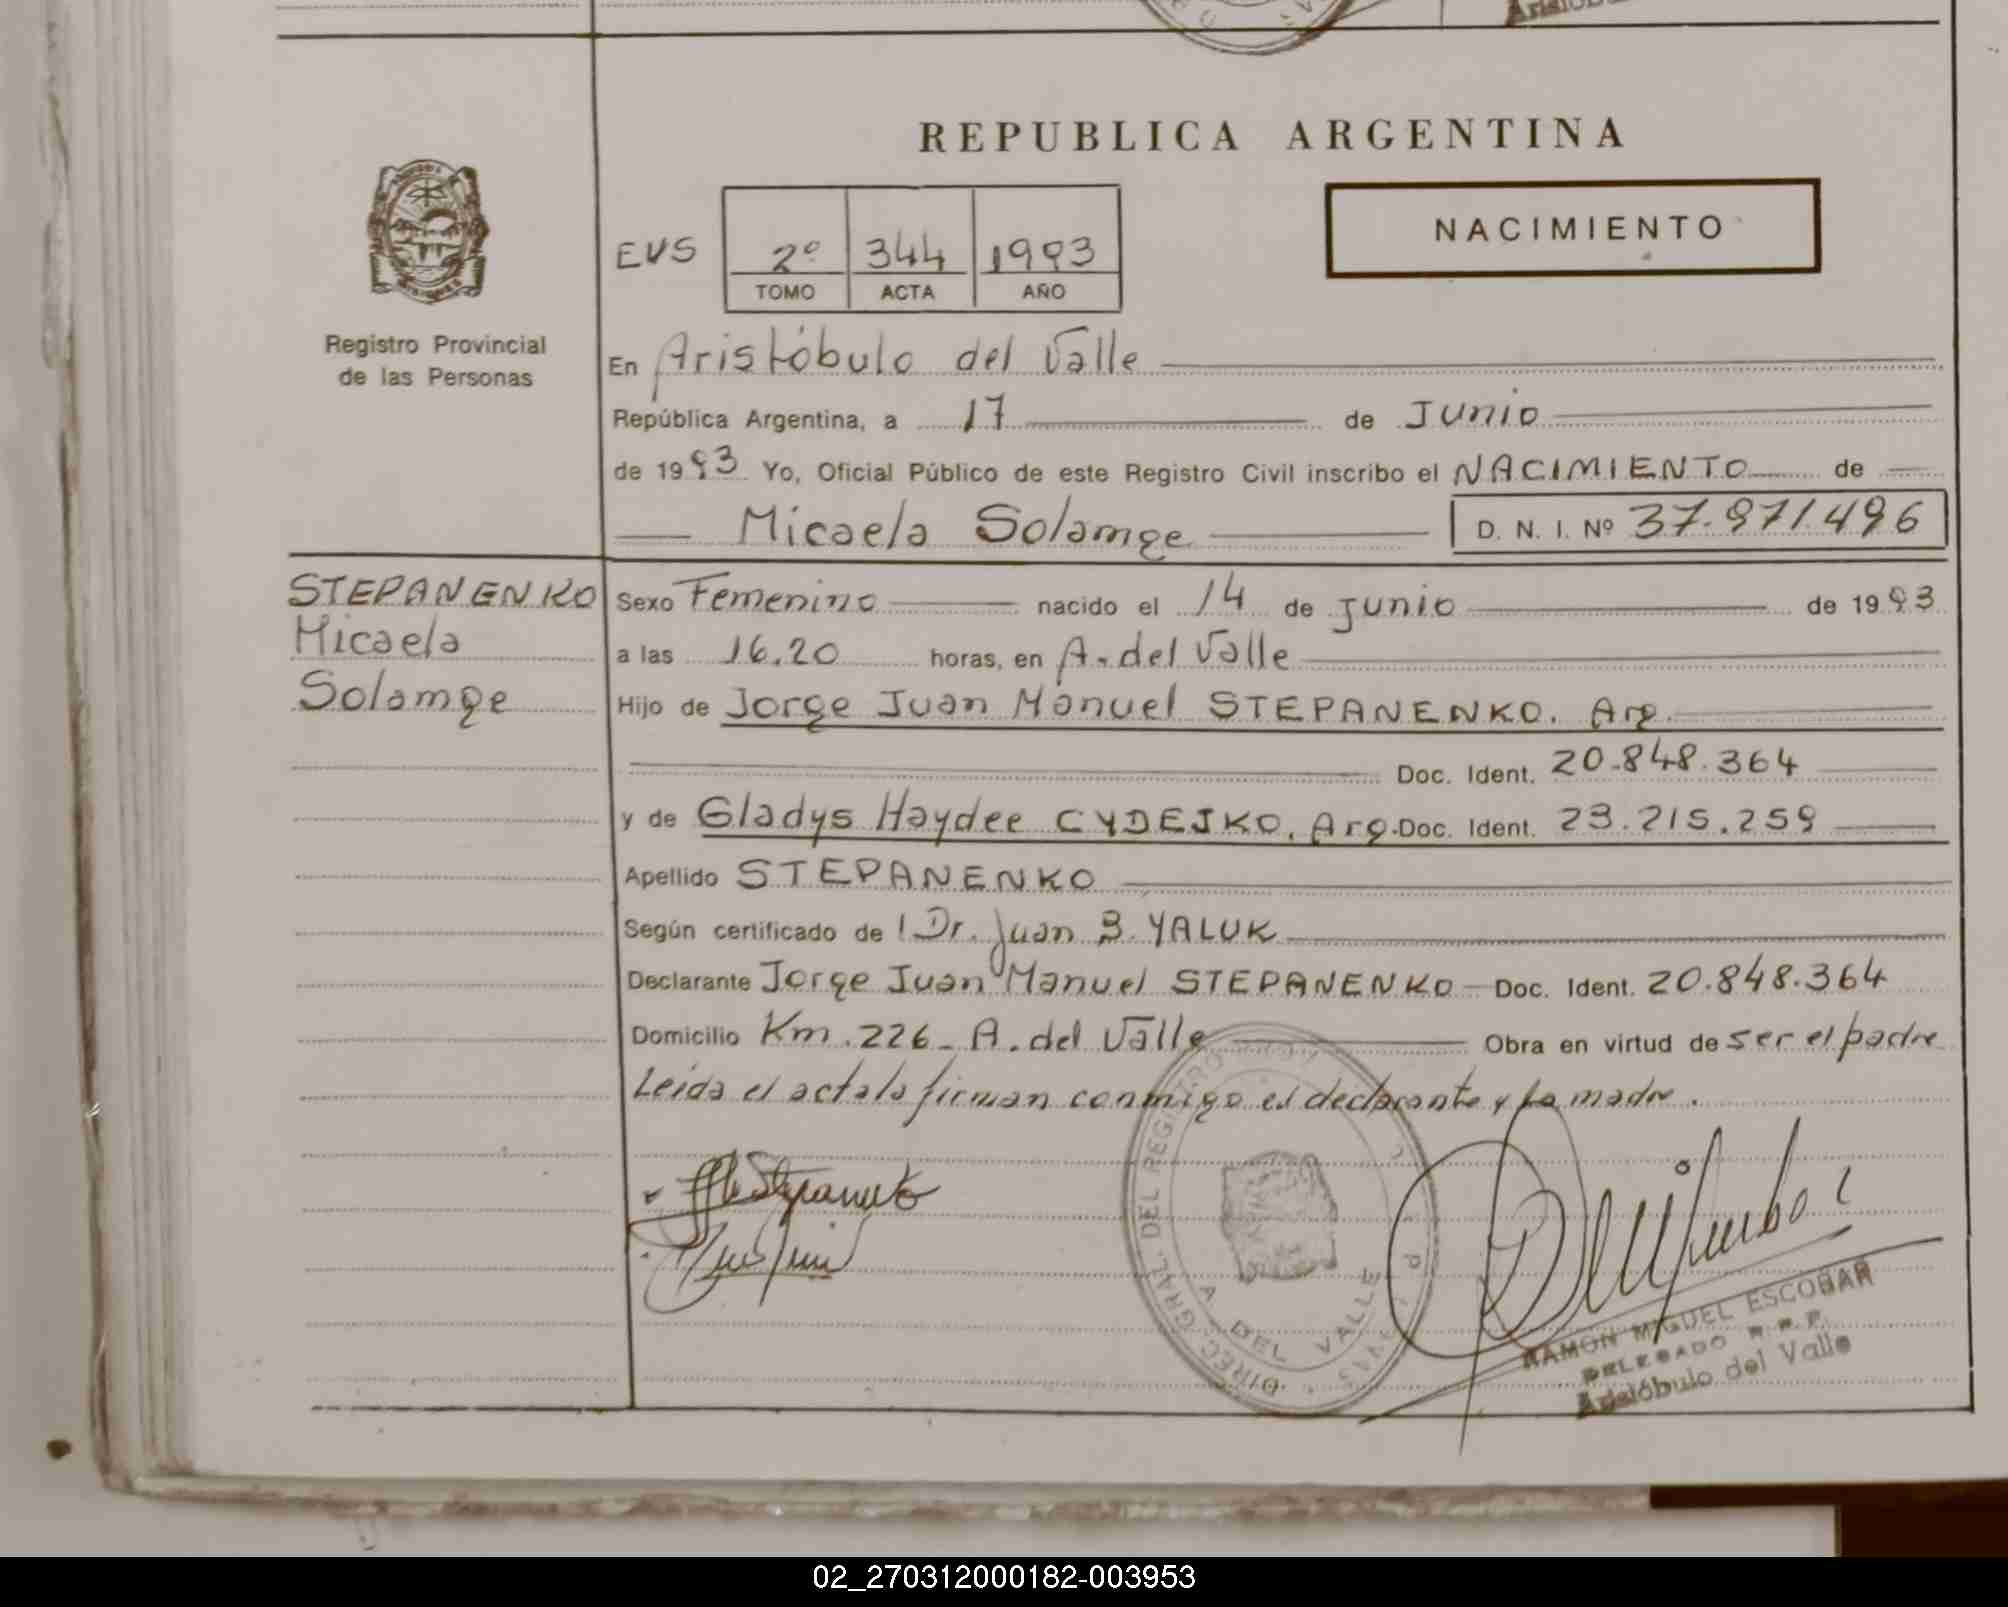 REPUBLICA ARGENTINA
NACIMIENTO
EVS 2º 344 1993
TOMO ACTA AÑO
Registro Provincial
de las Personas
En Aristóbulo del Valle
República Argentina, a 17 de Junio
de 1993 Yo, Oficial Público de este Registro Civil inscribo el NACIMIENTO de
Micaela Solange D. N. I. Nº 37.971.496
STEPANENKO
Micaela
Solange
Sexo Femenino nacido el 14 de junio de 1993
a las 16.20 horas, en A. del Valle
Hijo de Jorge Juan Manuel STEPANENKO. Arg.
Doc. Ident. 20.848.364
y de Gladys Haydee CYDEJKO. Arg. Doc. Ident. 23.215.259
Apellido STEPANENKO
Según certificado de l Dr. Juan B. YALUK
Declarante Jorge Juan Manuel STEPANENKO Doc. Ident. 20.848.364
Domicilio Km. 226 - A. del Valle Obra en virtud de ser el padre
Leida el acta la firman conmigo el declarante y la madre.
DIREC. GRAL. DEL REGISTRO
A. DEL VALLE
RAMON MIGUEL ESCOBAR
DELEGADO R. R. P.
Aristóbulo del Valle
02_270312000182-003953